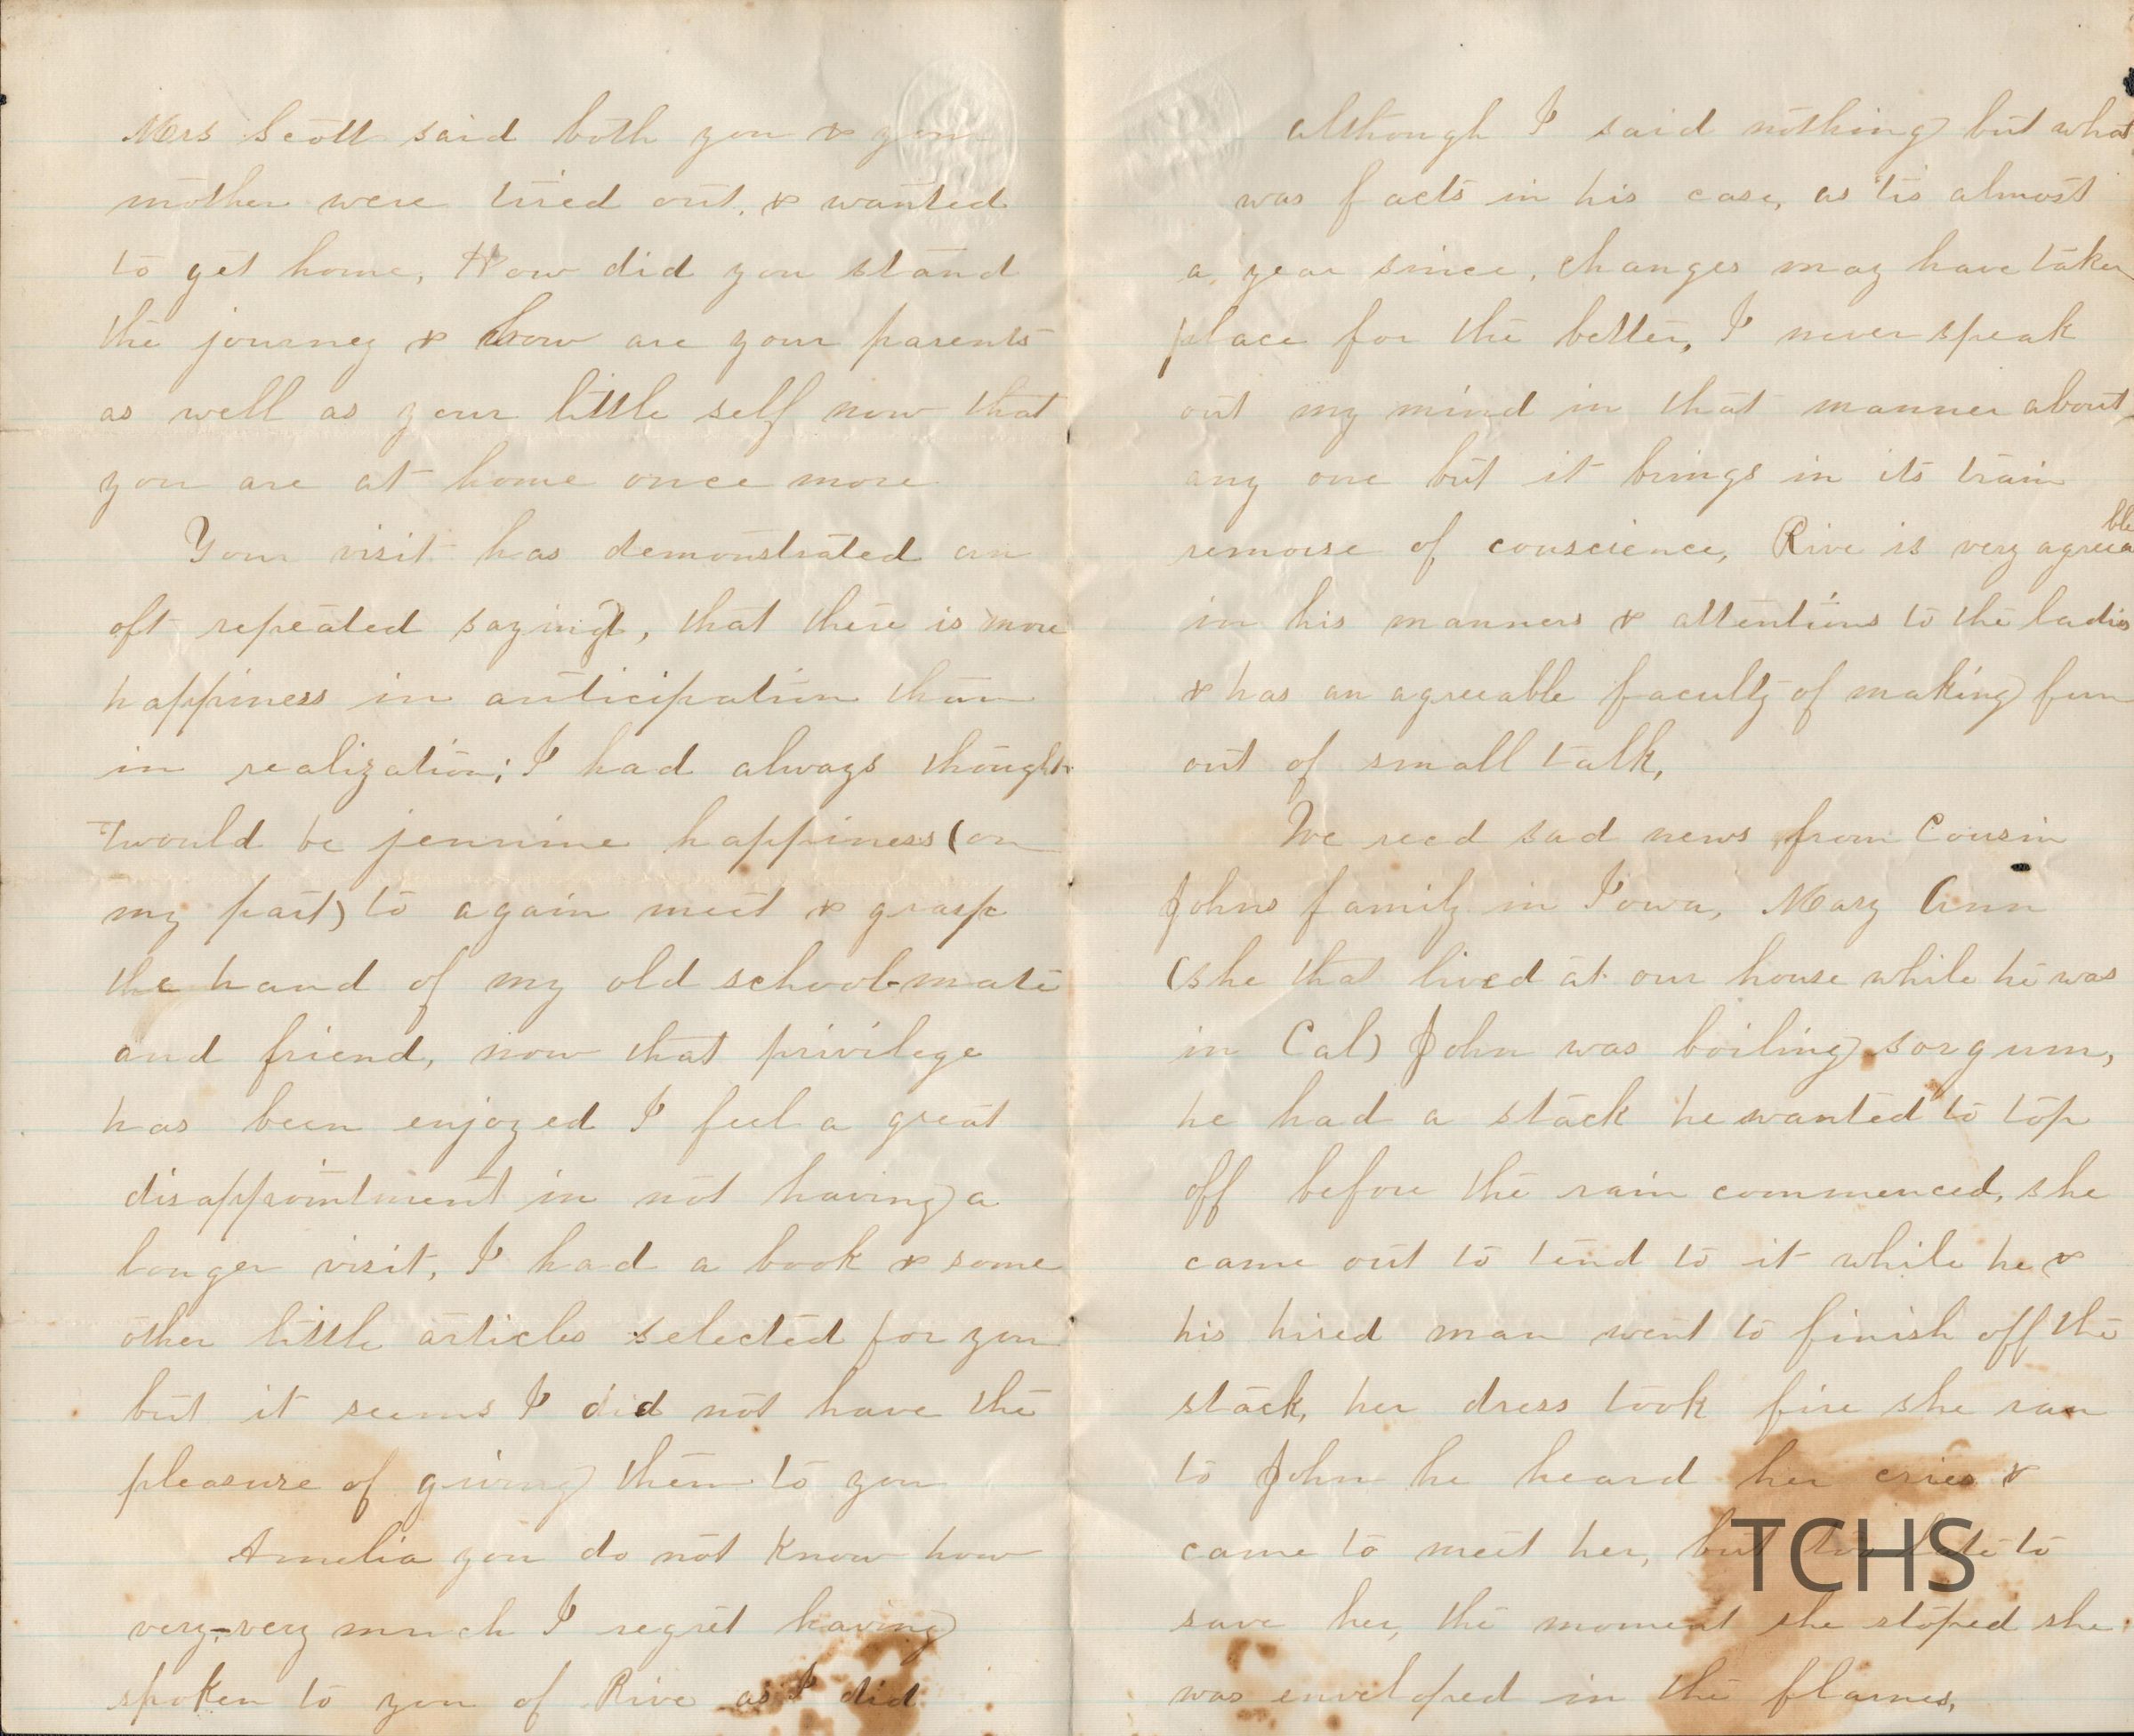 Mrs Scott said both you & your
mother were tired out, & wanted
to get home, How did you stand
the journey & how are your parents
as well as your little self now that
you are at home once more
Your visit has demonstrated an
oft repeated saying, that there is more
happiness in anticipation than
in realization; I had always thought
'twould be jennine happiness (on
my part) to again meet & grasp
the hand of my old school-mate
and friend, now that privilege
has been enjoyed I feel a great
disappointment in not having a
longer visit, I had a book & some
other little articles selected for you
but it seems I did not have the
pleasure of giving them to you
Amelia you do not know how
very-very much I regret having
spoken to you of Rive as I did
although I said nothing but what
was facts in his case, as 'tis almost
a year since, changes may have taken
place for the better, I never speak
out my mind in that manner about
any one but it brings in its train
remorse of conscience, Rive is very agreeable
in his manners & attentions to the ladies
& has an agreeable faculty of making fun
out of small talk,
We recd sad news from Cousin
Johns family in Iowa, Mary Ann
(she that lived at our house while he was
in Cal) John was boiling sorgum,
he had a stack he wanted to top
off before the rain commenced, she
came out to tend to it while he &
his hired man went to finish off the
stack, her dress took fire she ran
to John he heard her cries &
came to meet her, but too late to
save her, the moment she stoped she
was enveloped in the flames,
TCHS